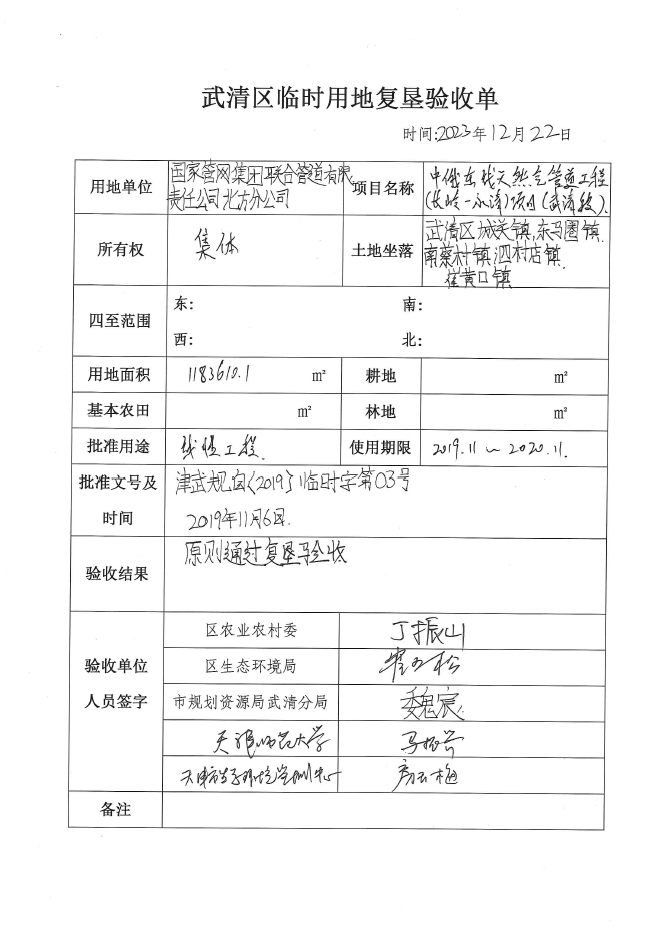 武清区临时用地复垦验收单
时间:2023年12月22日
用地单位 国家管网集团联合管道有限责任公司北方分公司 项目名称 中俄东线天然气管道工程(长岭-永清)项目(武清段).
所有权 集体 土地坐落 武清区城关镇,东马圈镇.南蔡村镇,泗村店镇.崔黄口镇
四至范围 东: 南:
西: 北:
用地面积 1183610.1 m² 耕地 m²
基本农田 m² 林地 m²
批准用途 线性工程. 使用期限 2019.11～2020.11.
批准文号及时间 津武规自〔2019〕临时字第03号
2019年11月6日.
验收结果 原则通过复垦验收
验收单位人员签字
区农业农村委 丁振山
区生态环境局
市规划资源局武清分局 魏宸
天津师范大学
天津市生态环境监测中心
备注